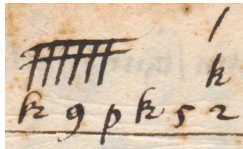 k
k 9 p k 5 2